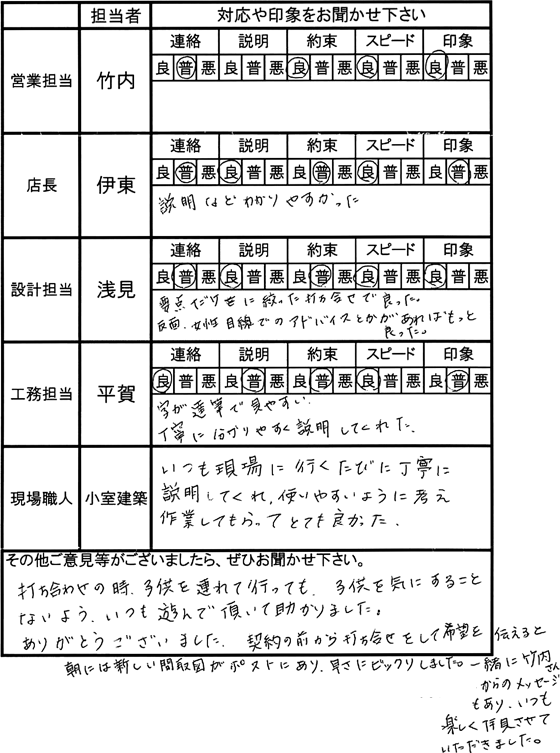 担当者 対応や印象をお聞かせ下さい
営業担当 竹内
連絡 説明 約束 スピード 印象
良 普 悪 良 普 悪 良 普 悪 良 普 悪 良 普 悪
店長 伊東
連絡 説明 約束 スピード 印象
良 普 悪 良 普 悪 良 普 悪 良 普 悪 良 普 悪
説明などわかりやすかった
設計担当 浅見
連絡 説明 約束 スピード 印象
良 普 悪 良 普 悪 良 普 悪 良 普 悪 良 普 悪
要点だけを に絞った打ち合せで良った。
反面、女性目線でのアドバイスとかがあればもっと
良った。
工務担当 平賀
連絡 説明 約束 スピード 印象
良 普 悪 良 普 悪 良 普 悪 良 普 悪 良 普 悪
字が達筆で見やすい.
丁寧に分かりやすく説明してくれた.
現場職人 小室建築
いつも現場に行くたびに丁寧に
説明してくれ,使いやすいように考え
作業してもらってとても良かった.
その他ご意見等がございましたら、ぜひお聞かせ下さい。
打ち合わせの時、子供を連れて行っても、子供を気にすること
ないよう、いつも遊んで頂いて助かりました。
ありがとうございました. 契約の前から打ち合せをして希望を伝えると
朝には新しい間取図がポストにあり、早さにビックリしました。一緒に竹内さん
からのメッセージ
もあり、いつも
楽しく拝見させて
いただきました。